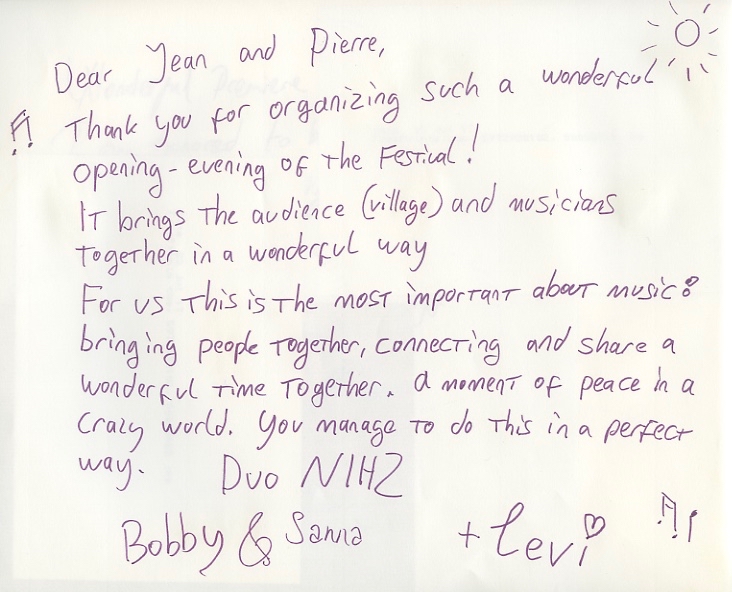 Dear Jean and Pierre,
Thank you for organizing such a wonderful
opening-evening of the Festival!
It brings the audience (village) and musicians
together in a wonderful way
For us this is the most important about music:
bringing people together, connecting and share a
wonderful time together. a moment of peace in a
crazy world. You manage to do this in a perfect
way. Duo NIHZ
Bobby & Sanna + Levi